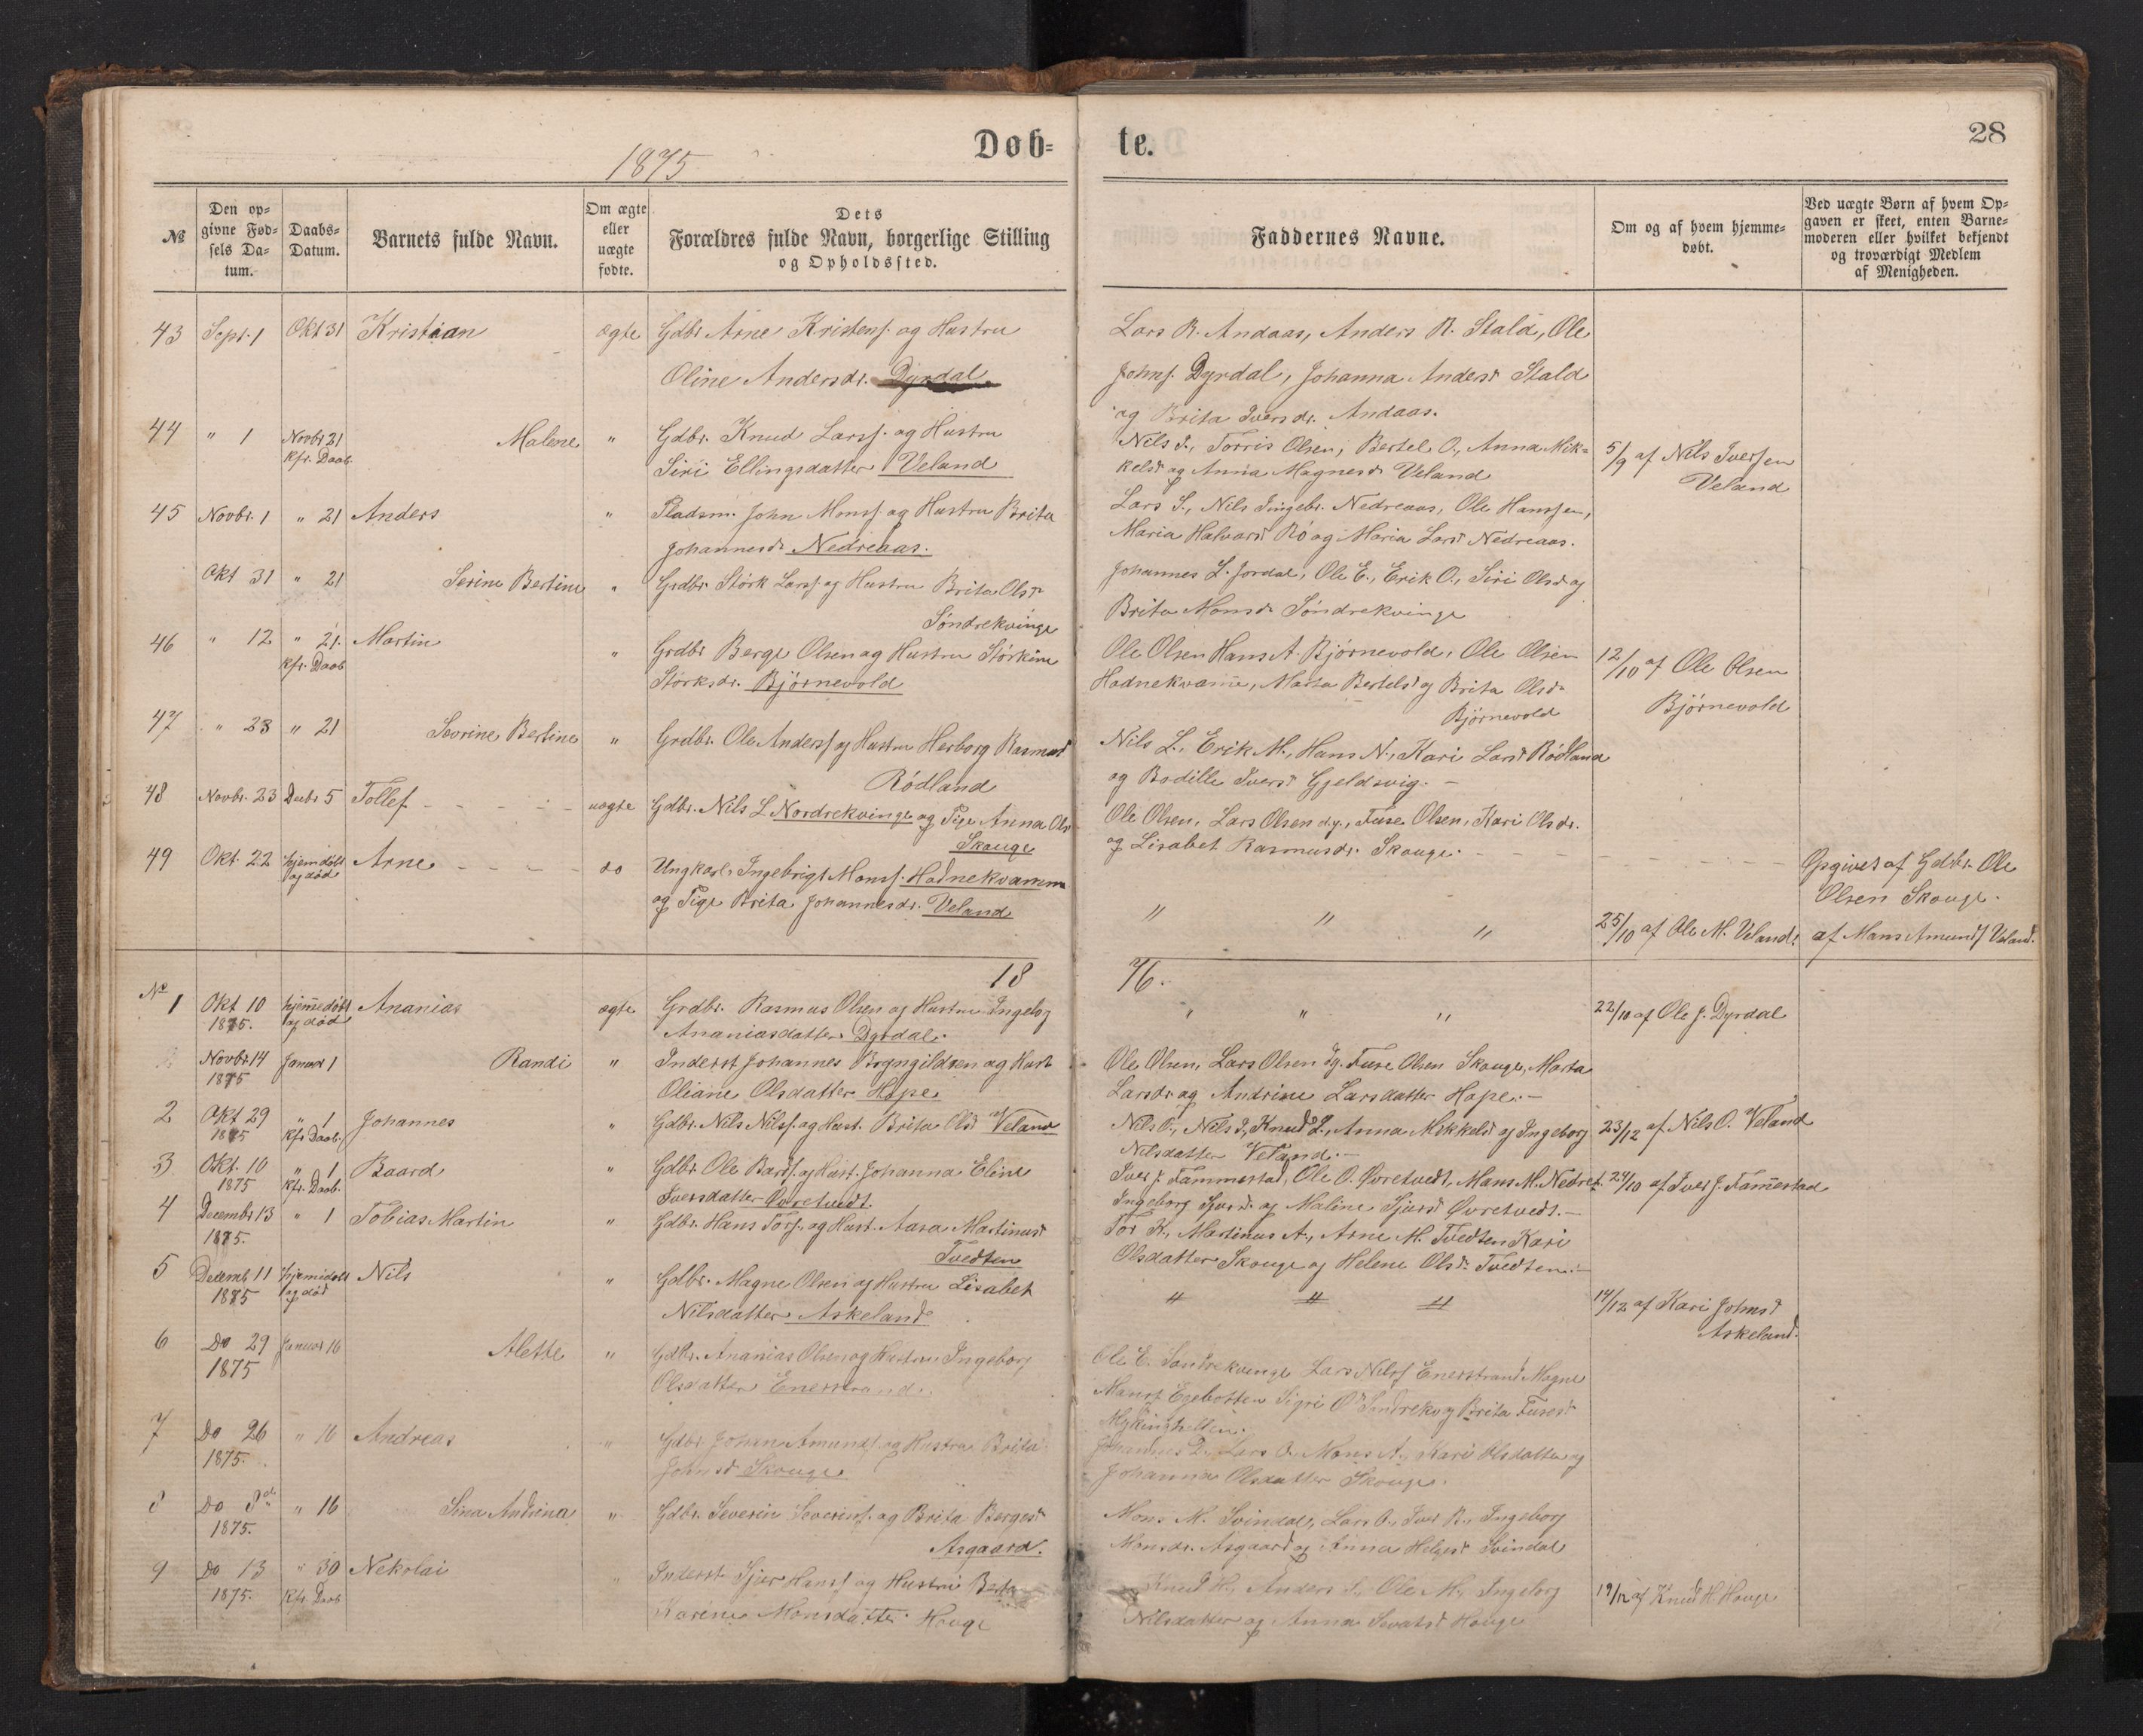 Døb-
te.
28
1875
№
Den op-
givne Fød-
sels Da-
tum.
Daabs-
Datum.
Barnets fulde Navn.
Om ægte
eller
uægte
fødte.
Dets
Forældres fulde Navn, borgerlige Stilling
og Opholdssted.
Faddernes Navne.
Om og af hvem hjemme-
døbt.
Ved uægte Børn af hvem Op-
gaven er skeet, enten Barne-
moderen eller hvilket bekjendt
og troværdigt Medlem
af Menigheden.
43 Sept. 1 Okt 31 Kristian ægte Gdbr Arne Kristens. og Hustru
Oline Andersdr. Dyrdal
Lars R. Andaas, Anders R. Stald, Ole
Johns. Dyrdal, Johanna Andersd Stald
og Brita Iversdr. Andaas.
44 " 1 Novbr 21
kfr. Daab
Malene " Gdbr. Knud Larss. og Hustru
Siri Ellingsdatter Veland
Nils I., Torris Olsen, Bertel O., Anna Mik-
kelsd og Anna Magnesd Veland
5/9 af Nils Iversen
Veland
45 Novbr. 1 " 21 Anders " Pladsm. John Monss. og Hustru Brita
Johannesd. Nedreaas.
Lars S., Nils Ingebr. Nedreaas, Ole Hanssen,
Maria Halvorsd Rö og Maria Larsd Nedreaas.
Okt 31 " 21 Serine Bertine " Grdbr Störk Larss og Hustru Brita Olsdr
Söndrekvinge
Johannes L. Jordal, Ole E., Erik O., Siri Olsd og
Brita Monsd. Söndrekvinge
46 " 12 " 21.
kfr. Daab
Martin " Grdbr Berge Olsen og Hustru Störkine
Störksdr. Björnevold
Ole Olsen Hans A. Björnevold, Ole Olsen
Hodnekvame, Marta Bertelsd og Brita Olsdr
Björnevold
12/10 af Ole Olsen
Björnevold
47 " 23 " 21 Sevrine Bertine " Grdbr. Ole Anderss og Hustru Herborg Rasmusd
Rödland
Nils L., Erik M., Hans N., Kari Larsd Rödland
og Bodille Iversd Gjeldsvig. -
48 Novbr. 23 Decbr 5 Tollef uægte Gdbr. Nils L Nordrekvinge og Pige Anna Ols
Skauge
Ole Olsen, Lars Olsen d.y., Fuse Olsen, Kari Olsdr.
og Lisabet Rasmusdr. Skauge.
Opgivet af Gdbr. Ole
Olsen Skauge.
49 Okt. 22 hjemdöbt
og död
Arne do Ungkarl Ingebrigt Monss. Hodnekvamm
og Pige Brita Johannesdr. Veland
" " "
25/10 af Ole M. Veland. af Mans Amunds Veland.
18
76.
№ 1 Okt 10
1875.
hjemmedöbt
og död
Ananias ægte Grdbr. Rasmus Olsen og Hustru Ingeborg
Ananiasdatter Dyrdal.
" " "
22/10 af Ole J. Dyrdal
Novbr. 14
1875
Januar 1 Randi " Inderst Johannes Brynjildsen og Hust
Oliane Olsdatter Hope
Ole Olsen, Lars Olsen Dy. Fuse Olsen Skauge, Marta
Larsdr og Andrine Larsdatter Hope. -
2 Okt 29
1875
" 1
kfr Daab.
Johannes " Gdbr. Nils Nilss. og Hust. Brita Olsd Veland
Nils O., Nils I., Knud L., Anna Mikkelsd og Ingeborg
Nilsdatter Veland. -
23/12 af Nils O. Veland
3 Okt. 10
1875
" 1
kfr. Daab.
Baard " Gdbr. Ole Bards. og Hust. Johanna Eline
Iversdatter Övretvedt.
Iver J. Fammestad, Ole O. Øvretvedt, Mans M. Nedret.
Ingeborg Sjursd. og Maline Sjursd Øvretvedt. -
24/10 af Iver J. Famestad
4 Decembr 13
1875.
" 1 Tobias Martin " Gdbr. Hans Tors. og Hust. Aasa Martinusd
Tvedten
Tor K., Martinus A., Arne M. Tvedten Kari
Olsdatter Skouge og Helene Olsd. Tvedten. -
5 Decemb. 11
1875
hjemdöbt
og död
Nils " Gdbr. Magne Olsen og Hustru Lisabet
Nilsdatter Askeland
" " "
14/12 af Kari Johnsd
Askeland.
6 Do 29
1875
Januar 16 Alette " Gdbr. Ananias Olsen og Hustru Ingeborg
Olsdatter Enerstrand.
Ole E. Söndrekvinge Lars Nilss Enerstrand Magne
Manss Egebotten Sigri O Söndrekv og Brita Fusesd
7 Do 26
1875.
" 16 Andreas " Gdbr. Johan Amunds. og Hustru Brita
Johnsd Skouge
Johannes L., Lars O., Mons A., Kari Olsdatter og
Johanna Olsdatter Skouge.
8 Do 8de
1875.
" 16 Sina Andrina " Gdbr. Severin Severins. og Brita Bergesd
Asgaard.
Mons M. Svindal, Lars O., Iver R., Ingeborg
Monsdr. Asgaard og Anna Helgesd Svindal
9 Do 13
1875.
" 30
kfr Daab
Nekolai " Inderst Sjur Hanss og Hustru Berta
Karine Monsdatter Houge
Knud H., Anders S., Ole M., Ingeborg
Nilsdatter og Anna Sevatsd Houge
19/12 af Knud H. Houge